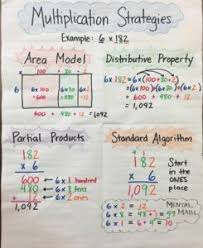 Multiplication Strategies
Example: 6 x 182
Area Model
100 + 80 + 2
6
6 x 100
=600
6 x 80
=480
6 x 2
=12
600 + 480 + 12 = 1,092
Distributive Property
6 x 182 = 6 x (100 + 80 + 2)
= (6 x 100) + (6 x 80) + (6 x 2)
= 600 + 480 + 12
= 1,092
Partial Products
182
x 6
600 ← 6 x 1 hundred
480 ← 6 x 8 tens
+ 12 ← 6 x 2 ones
1,092
Standard Algorithm
182
x 6
1,092
Start
in the
ONES
place
6 x 2 = 12
6 x 8 = 48 + 1 = 49
6 x 1 = 6 + 4 = 10
MENTAL
MATH